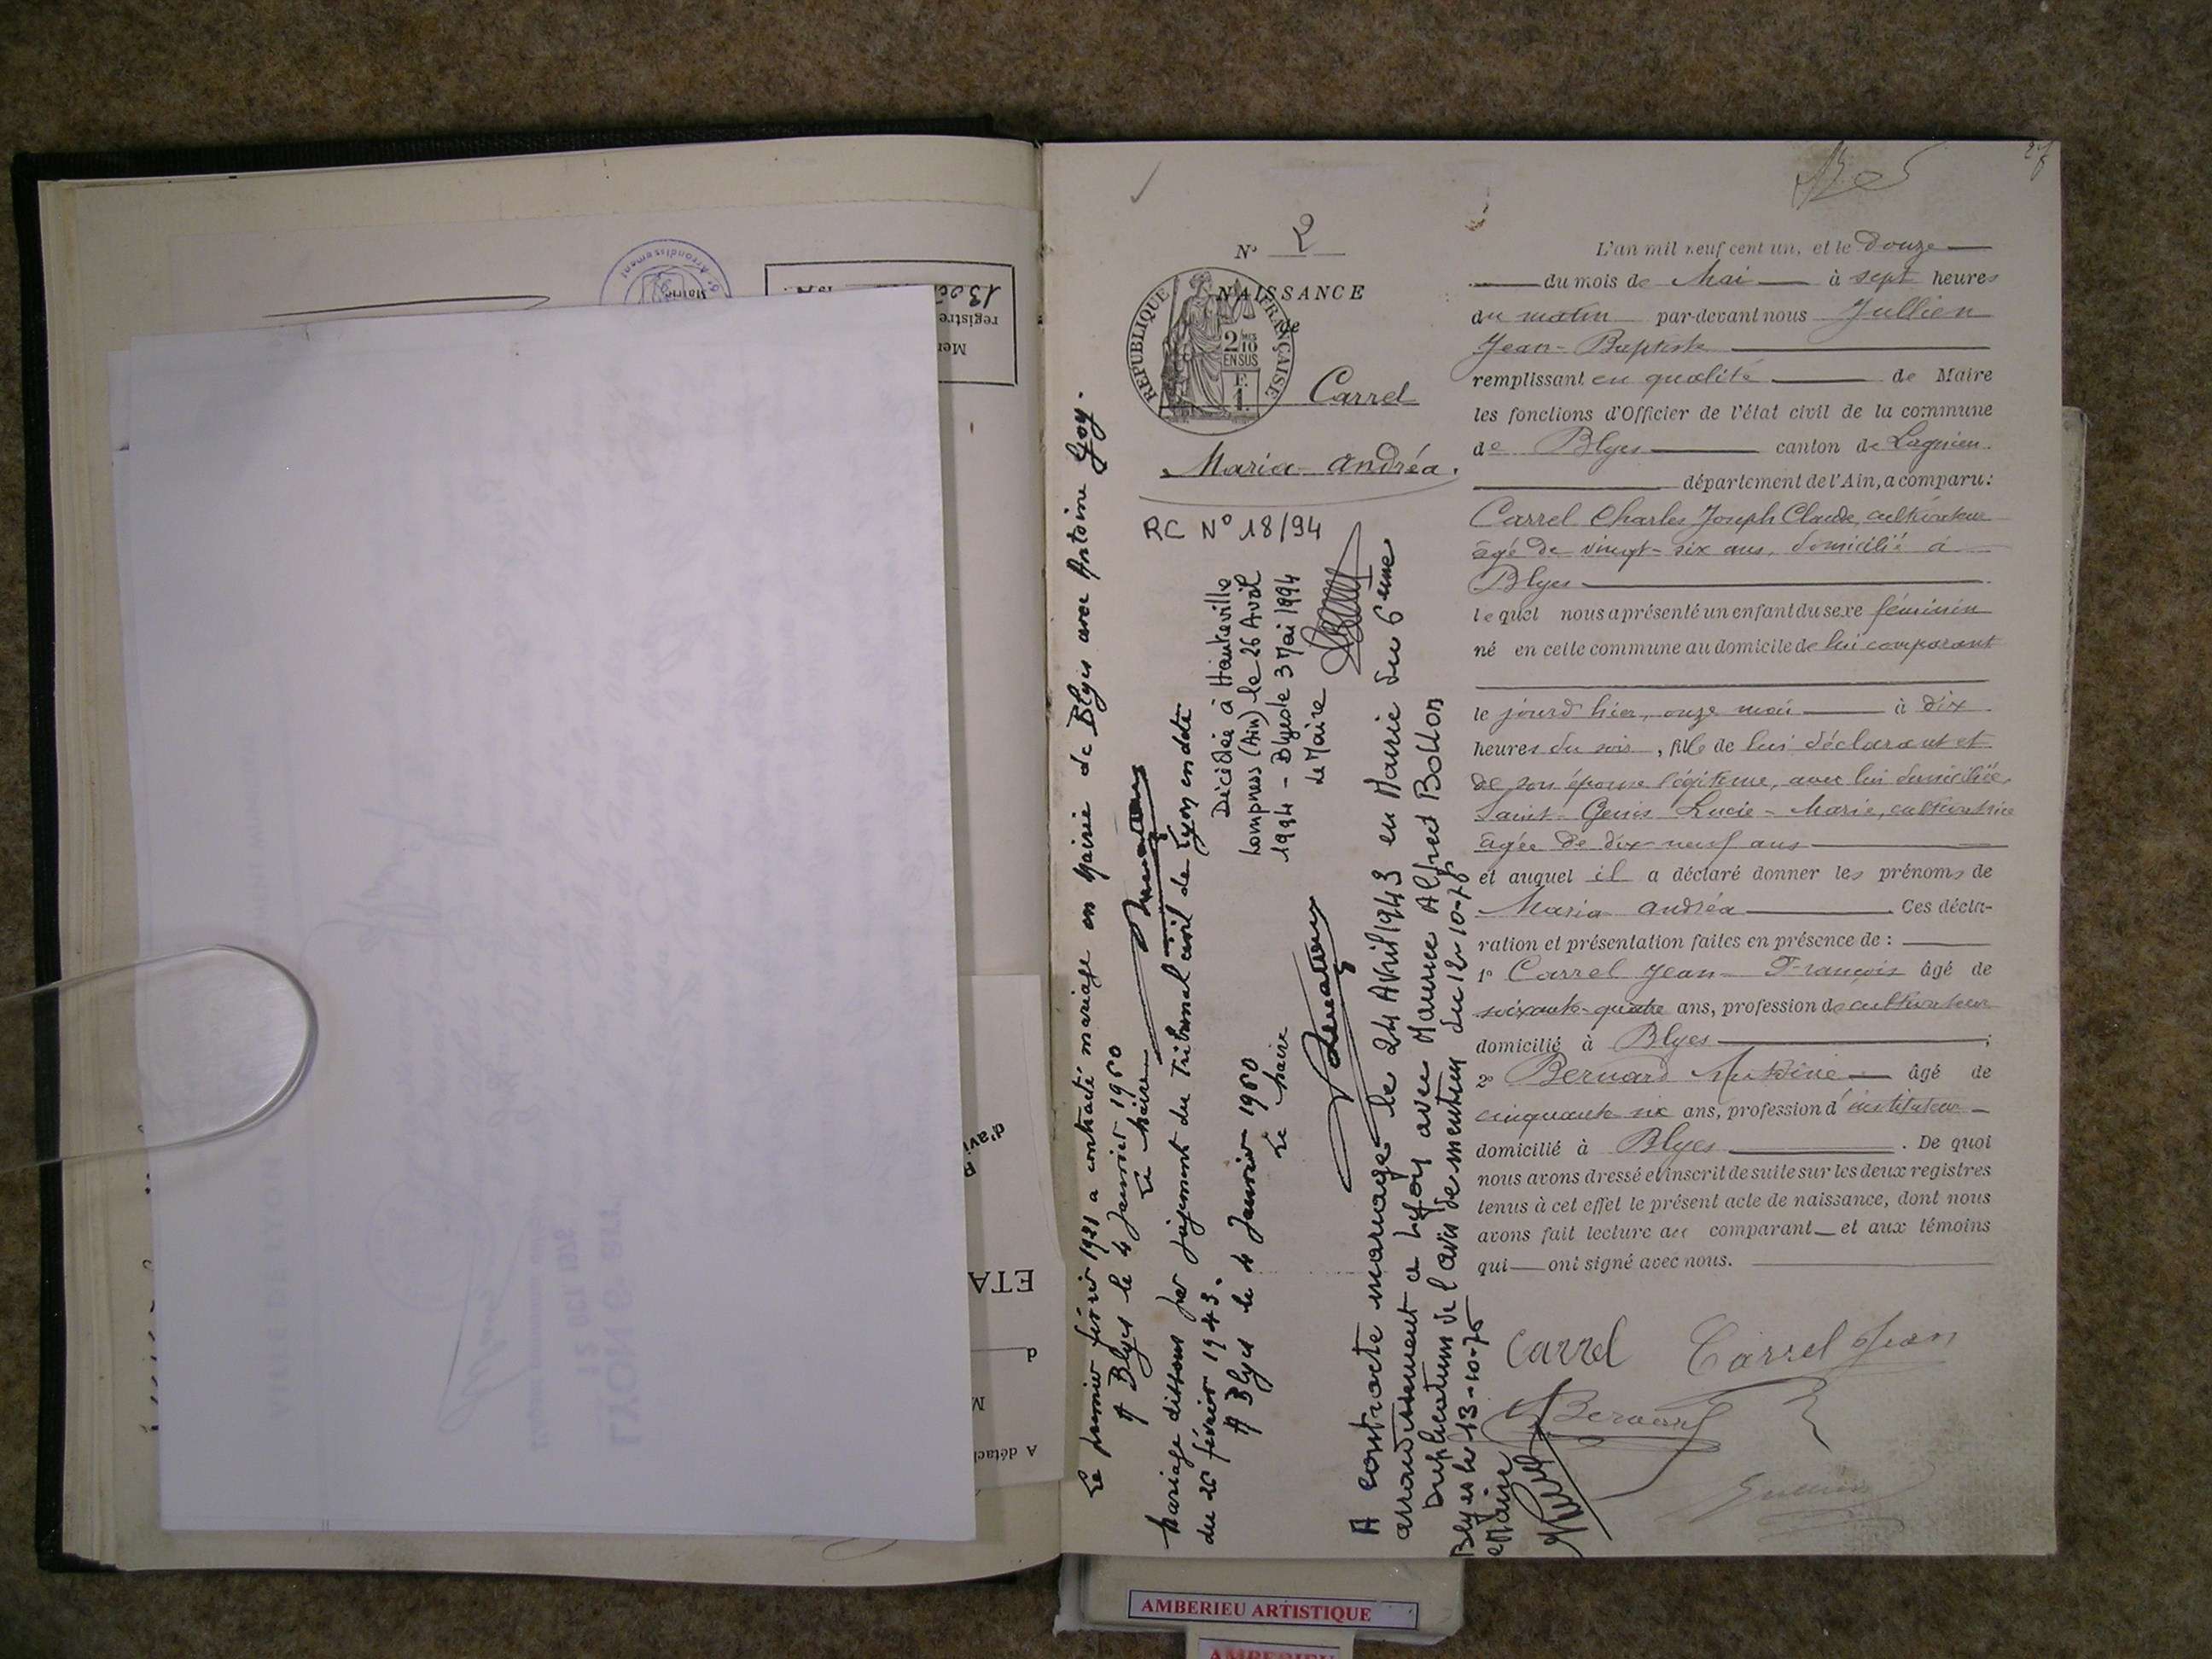 N° 2
NAISSANCE
de
RÉPUBLIQUE FRANÇAISE
2/10
EN SUS
F.
1.
Carrel
Maria Andréa.
RC N° 18/94
Décédée à Hauteville
Lompnes (Ain) le 26 Avril
1994 - Blyes le 3 Mai 1994
Le Maire
Le premier février 1921 a contracté mariage en Mairie de Blyes avec Antoine Goy.
A Blyes le 4 Janvier 1960
Le Maire
Mariage dissous par jugement du Tribunal civil de Lyon en date
du 26 février 1943.
A Blyes le 4 Janvier 1960
Le Maire
A contracté mariage le 24 Avril 1943 en Mairie du 6ème
arrondissement à Lyon avec Maurice Alfred Bollon
Duplicatum de l'avis de mention du 12-10-76
Blyes le 13-10-76
Le Maire
L'an mil neuf cent un, et le douze
du mois de Mai à sept heures
du matin par-devant nous Jullien
Jean-Baptiste
remplissant en qualité de Maire
les fonctions d'Officier de l'état civil de la commune
de Blyes canton de Lagnieu
département de l'Ain, a comparu:
Carrel Charles Joseph Claude, cultivateur
âgé de vingt-six ans, domicilié à
Blyes
lequel nous a présenté un enfant du sexe féminin
né en cette commune au domicile de lui comparant
le jourd'hier, onze mai à dix
heures du soir, fille de lui déclarant et
de son épouse légitime, avec lui domiciliée,
Saint-Genis Lucie-Marie, cultivatrice
âgée de dix-neuf ans
et auquel il a déclaré donner les prénoms de
Maria Andréa Ces décla-
ration et présentation faites en présence de :
1° Carrel Jean-François âgé de
soixante-quatre ans, profession de cultivateur
domicilié à Blyes ;
2° Bernard Antoine âgé de
cinquante six ans, profession d'instituteur
domicilié à Blyes . De quoi
nous avons dressé et inscrit de suite sur les deux registres
tenus à cet effet le présent acte de naissance, dont nous
avons fait lecture au comparant et aux témoins
qui ont signé avec nous.
Carrel Carrel Jean
Bernard
Jullien
Arrondissement
Mairie
registre
Men
d'avis
ETA
A détach
LYON 6e arr
12 OCT 1976
AMBERIEU ARTISTIQUE
AMBERIEU